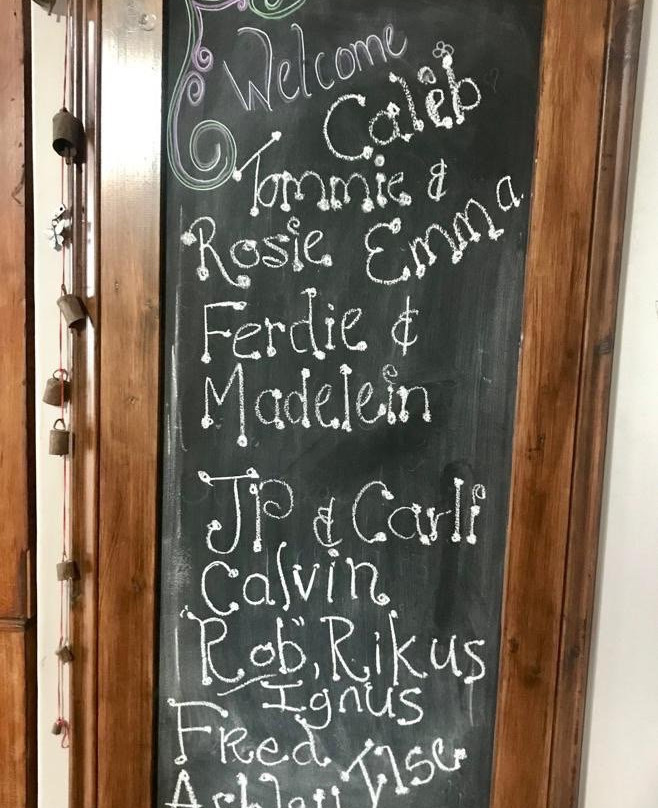 Welcome
Caleb
Tommie &
Rosie Emma
Ferdie &
Madelein
JP & Carli
Calvin
"Rob", Rikus
Ignus
Fred Ilse
Ashley